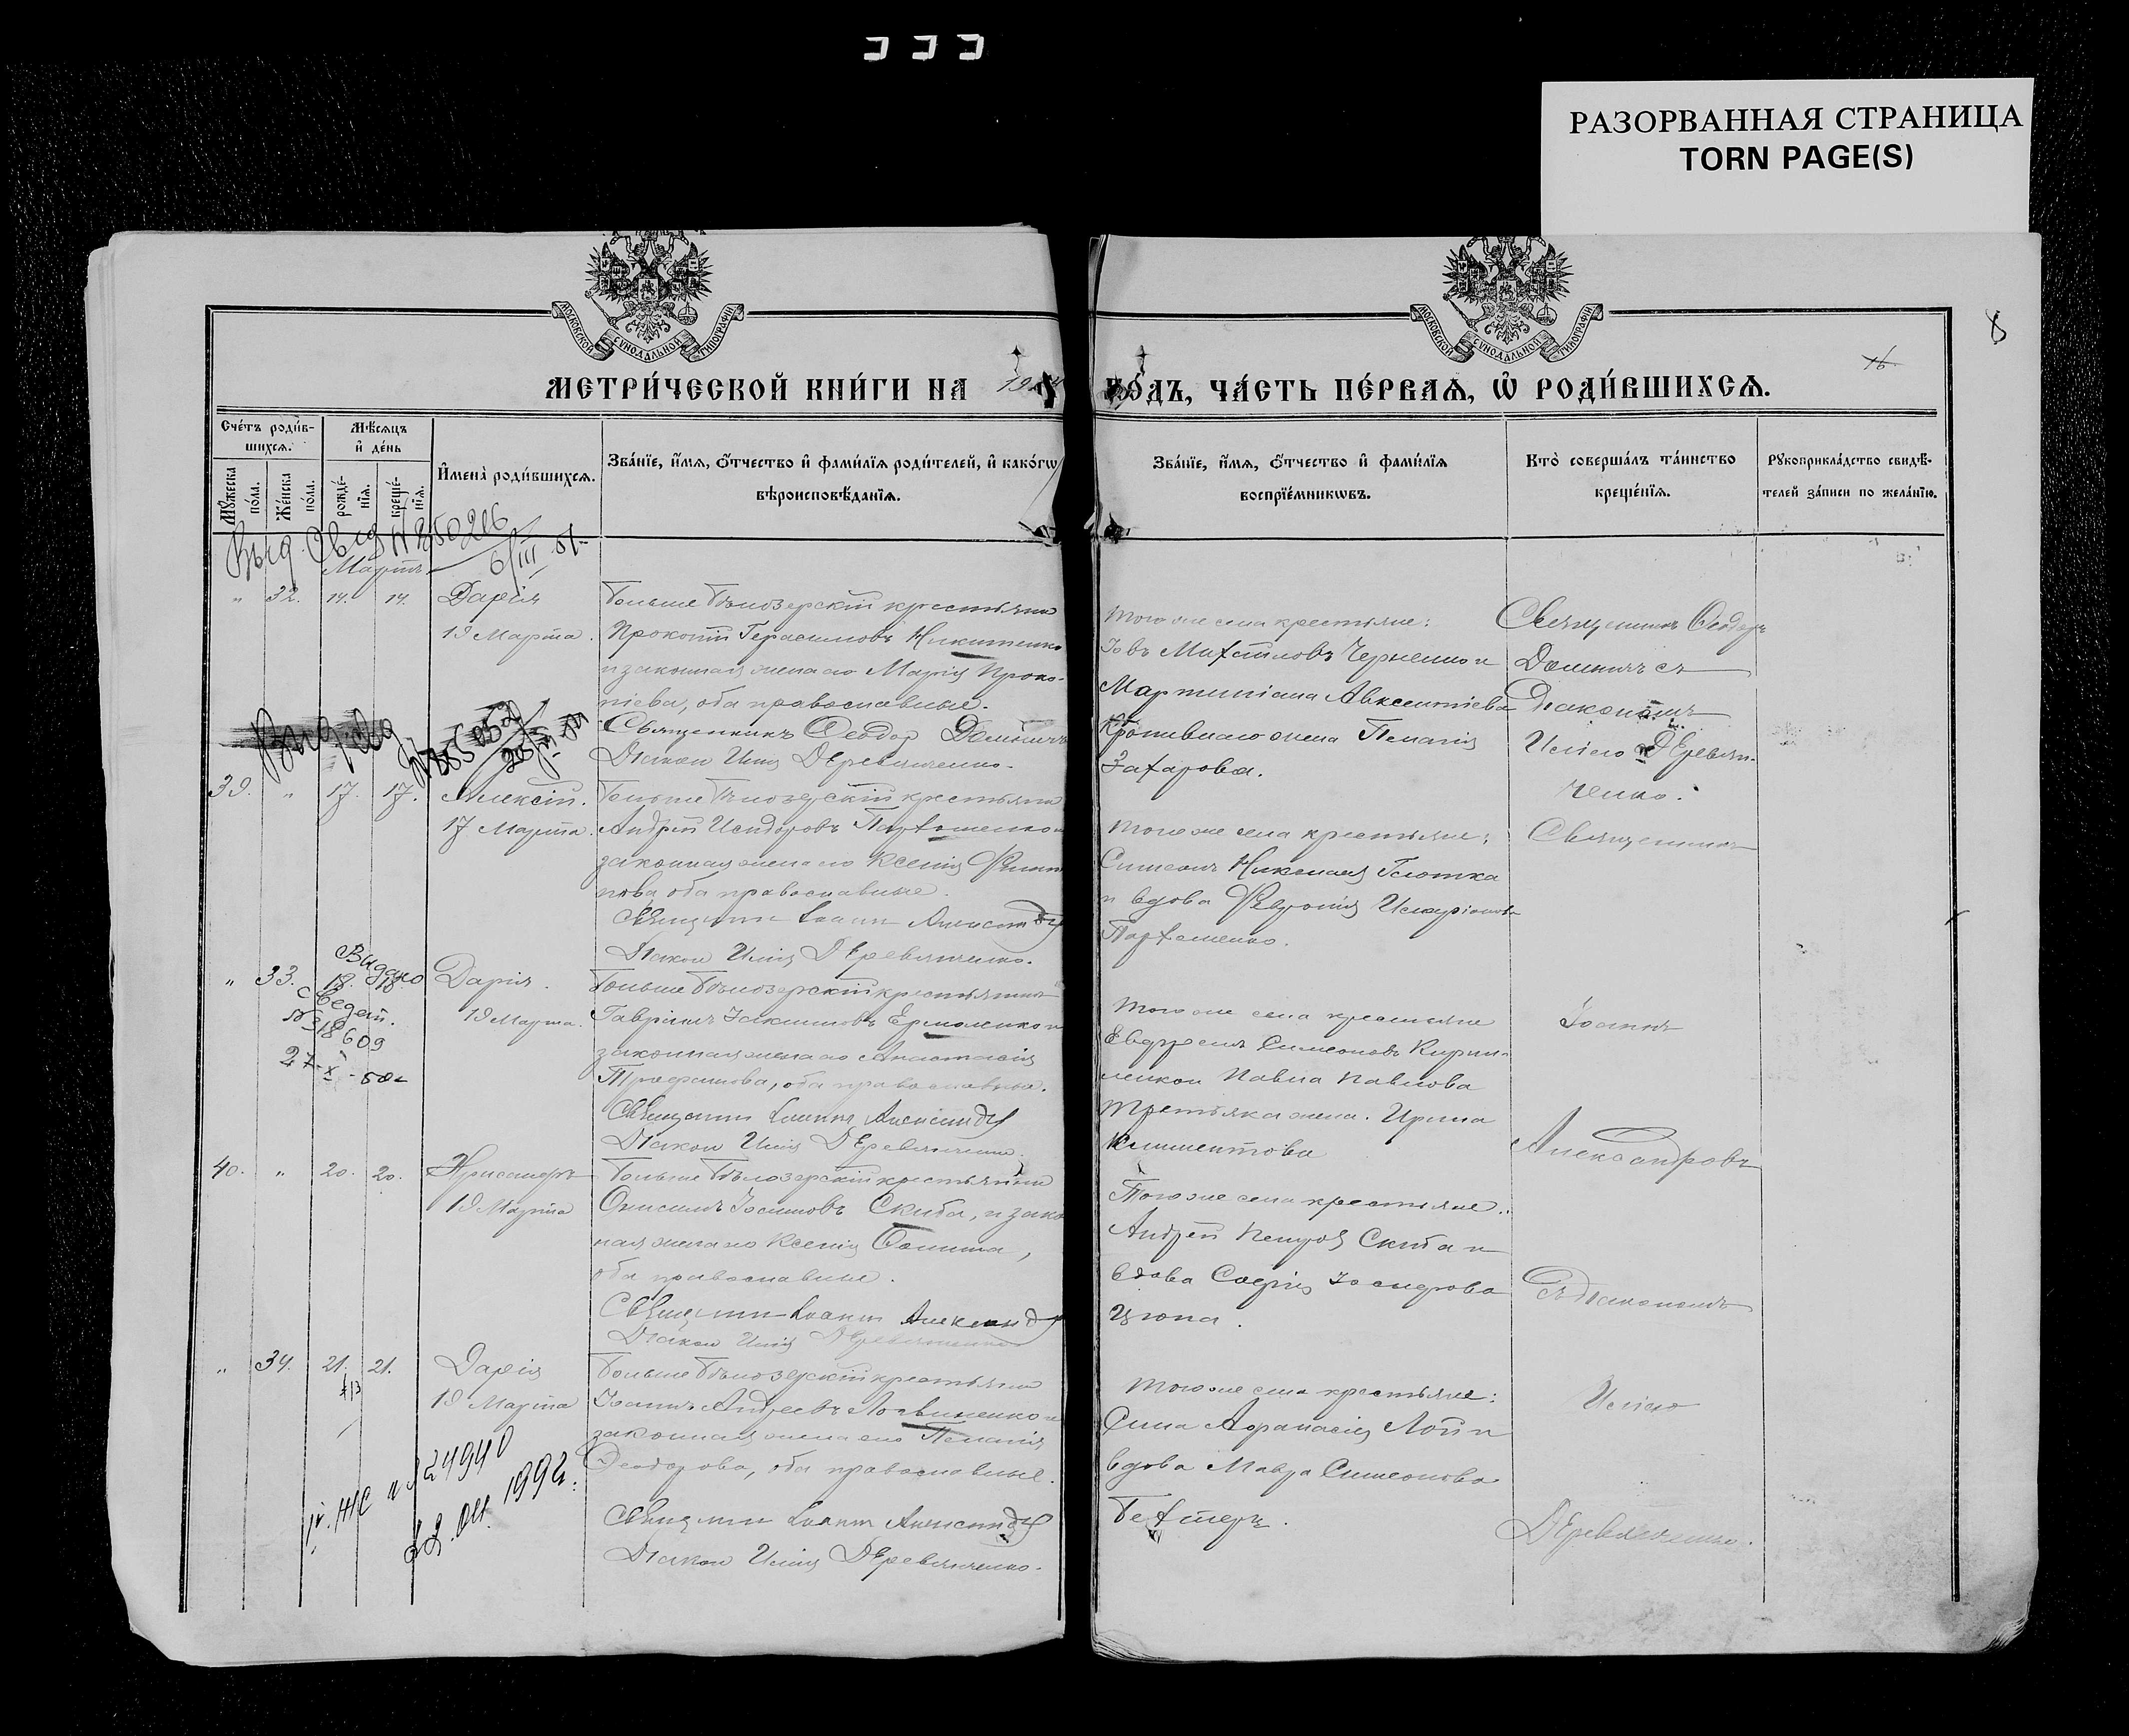 РАЗОРВАННАЯ СТРАНИЦА
TORN PAGE(S)
МОСКОВСКОЙ СУНОДАЛЬНОЙ ТИПОГРАФІИ
МОСКОВСКОЙ СУНОДАЛЬНОЙ ТИПОГРАФІИ
8
16
МЕТРИ́ЧЕСКОЙ КНИ́ГИ НА
ГО́ДЪ, ЧА́СТЬ ПЕ́РВАѦ, Ѡ҆ РОДИ́ВШИХСѦ.
Сче́тъ роди́в-
шихсѧ.
Мѣ́сѧцъ
и҆ де́нь
Мꙋ́жеска по́ла.
Же́нска по́ла.
рожде́-нїѧ.
креще́-нїѧ.
И҆мена̀ роди́вшихсѧ.
Зва́нїе, и҆́мѧ, ѻ҆́тчество и҆ фами́лїѧ роди́телей, и҆ како́гѡ
вѣроисповѣ́данїѧ.
Зва́нїе, и҆́мѧ, ѻ҆́тчество и҆ фами́лїѧ
воспрїе́мникѡвъ.
Кто̀ соверша́лъ та́инство
креще́нїѧ.
Рꙋкоприкла́дство свидѣ́-
телей за́писи по жела́нїю.
6/III 51
Мартъ
" 32. 14. 14. Дарія
19 Марта.
Больше Бѣлозерскій крестьянинъ
Прокопій Герасимовъ Никитенко
и законная жена его Марія Проко-
піева, оба православные.
Священникъ Ѳеодоръ
Діаконъ Илія Деревянченко.
Того же села крестьяне:
Іовъ Михаиловъ Черненко и
Мартиніана Авксентіева
жена Пелагія
Захарова.
Священникъ Ѳеодоръ
съ
Діакономъ
Иліею Деревян-
ченко.
39. " 17. 17. Алексій.
17 Марта.
Больше Бѣлозерскій крестьянинъ
Андрей Исидоровъ Пархоменко и
законная жена его Ксенія Филип-
пова, оба православные.
Священникъ Іоаннъ Александровъ
Діаконъ Илія Деревянченко.
Того же села крестьяне:
Симеонъ Николаевъ
и вдова Февронія
Пархоменко.
Священникъ
Видано
" 33. 18. 18. Дарія.
сведет.
№ 318609
27-X-50г
19 Марта.
Больше Бѣлозерскій крестьянинъ
Гавріилъ Іакимовъ Ермоленко и
законная жена его Анастасія
Трофимова, оба православные.
Священникъ Іоаннъ Александровъ
Діаконъ Илія Деревянченко.
Того же села крестьяне
Симеоновъ Кирил-
ленко и Павла Павлова
Третьяка жена Ирина
Климентова
Іоаннъ
Александровъ
40. " 20. 20. Хрисанфъ
19 Марта
Больше Бѣлозерскій крестьянинъ
Онисимъ Скиба, и закон-
ная жена его Ксенія Ѳомина,
оба православные.
Священникъ Іоаннъ Александровъ
Діаконъ Илія Деревянченко
Того же села крестьяне:
Андрей Петровъ Скиба и
вдова Софія
Цюпа.
съ Діакономъ
" 34. 21. 21. Дарія
19 Марта
Больше Бѣлозерскій крестьянинъ
Іоаннъ Андреевъ Логвиненко и
законная жена его Пелагія
Ѳеодорова, оба православные.
Священникъ Іоаннъ Александровъ
Діаконъ Илія Деревянченко.
Того же села крестьяне:
Афанасіевъ Лой и
вдова Мавра Симеонова
Бехтеръ.
Иліею
Деревянченко.
324940
1992